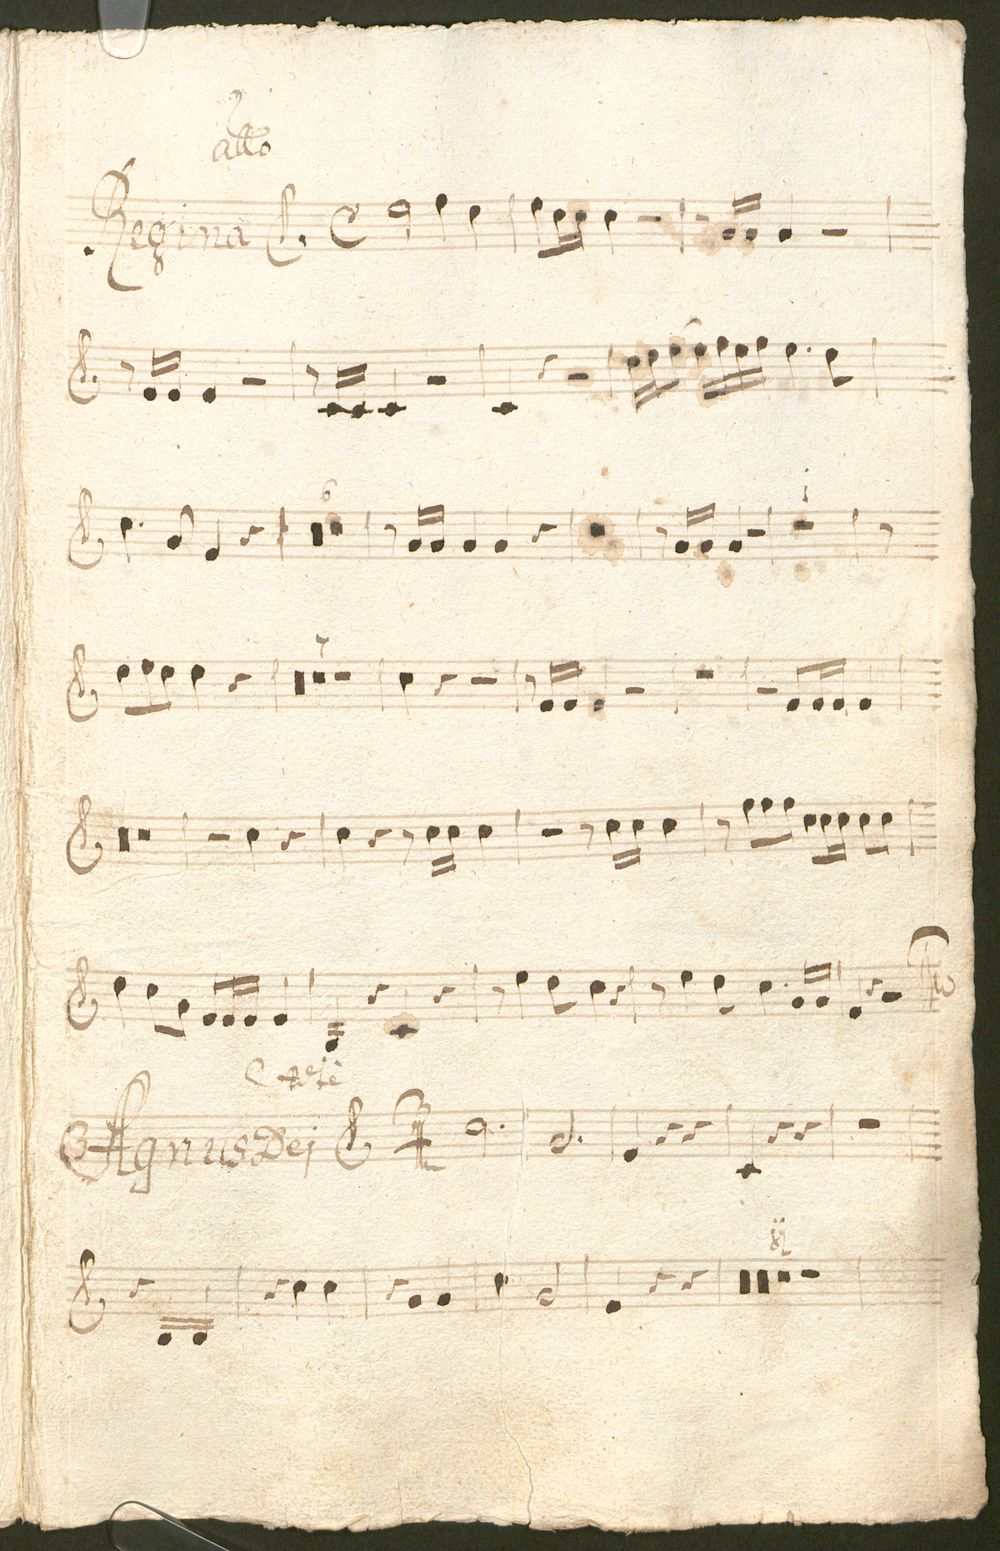 allo
Regina
6
1
7
Agnus Dej